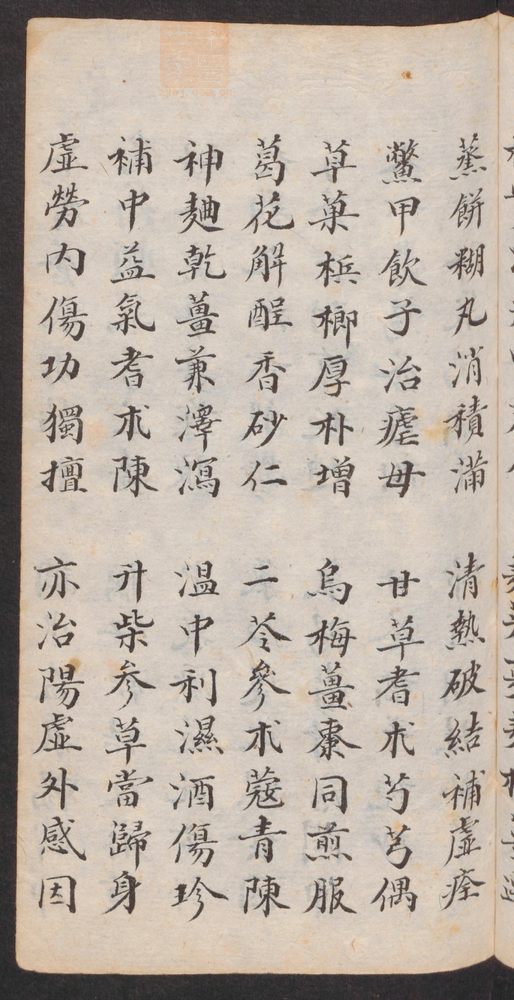 蒸餅糊丸消積滿 清熱破結補虛痊
鱉甲飲子治瘧母 甘草耆朮芍芎偶
草菓梹榔厚朴增 烏梅薑棗同煎服
葛花解酲香砂仁 二苓參朮蔻青陳
神麯乾薑兼澤瀉 溫中利濕酒傷珍
補中益氣耆朮陳 升柴參草當歸身
虛勞內傷功獨擅 亦治陽虛外感因